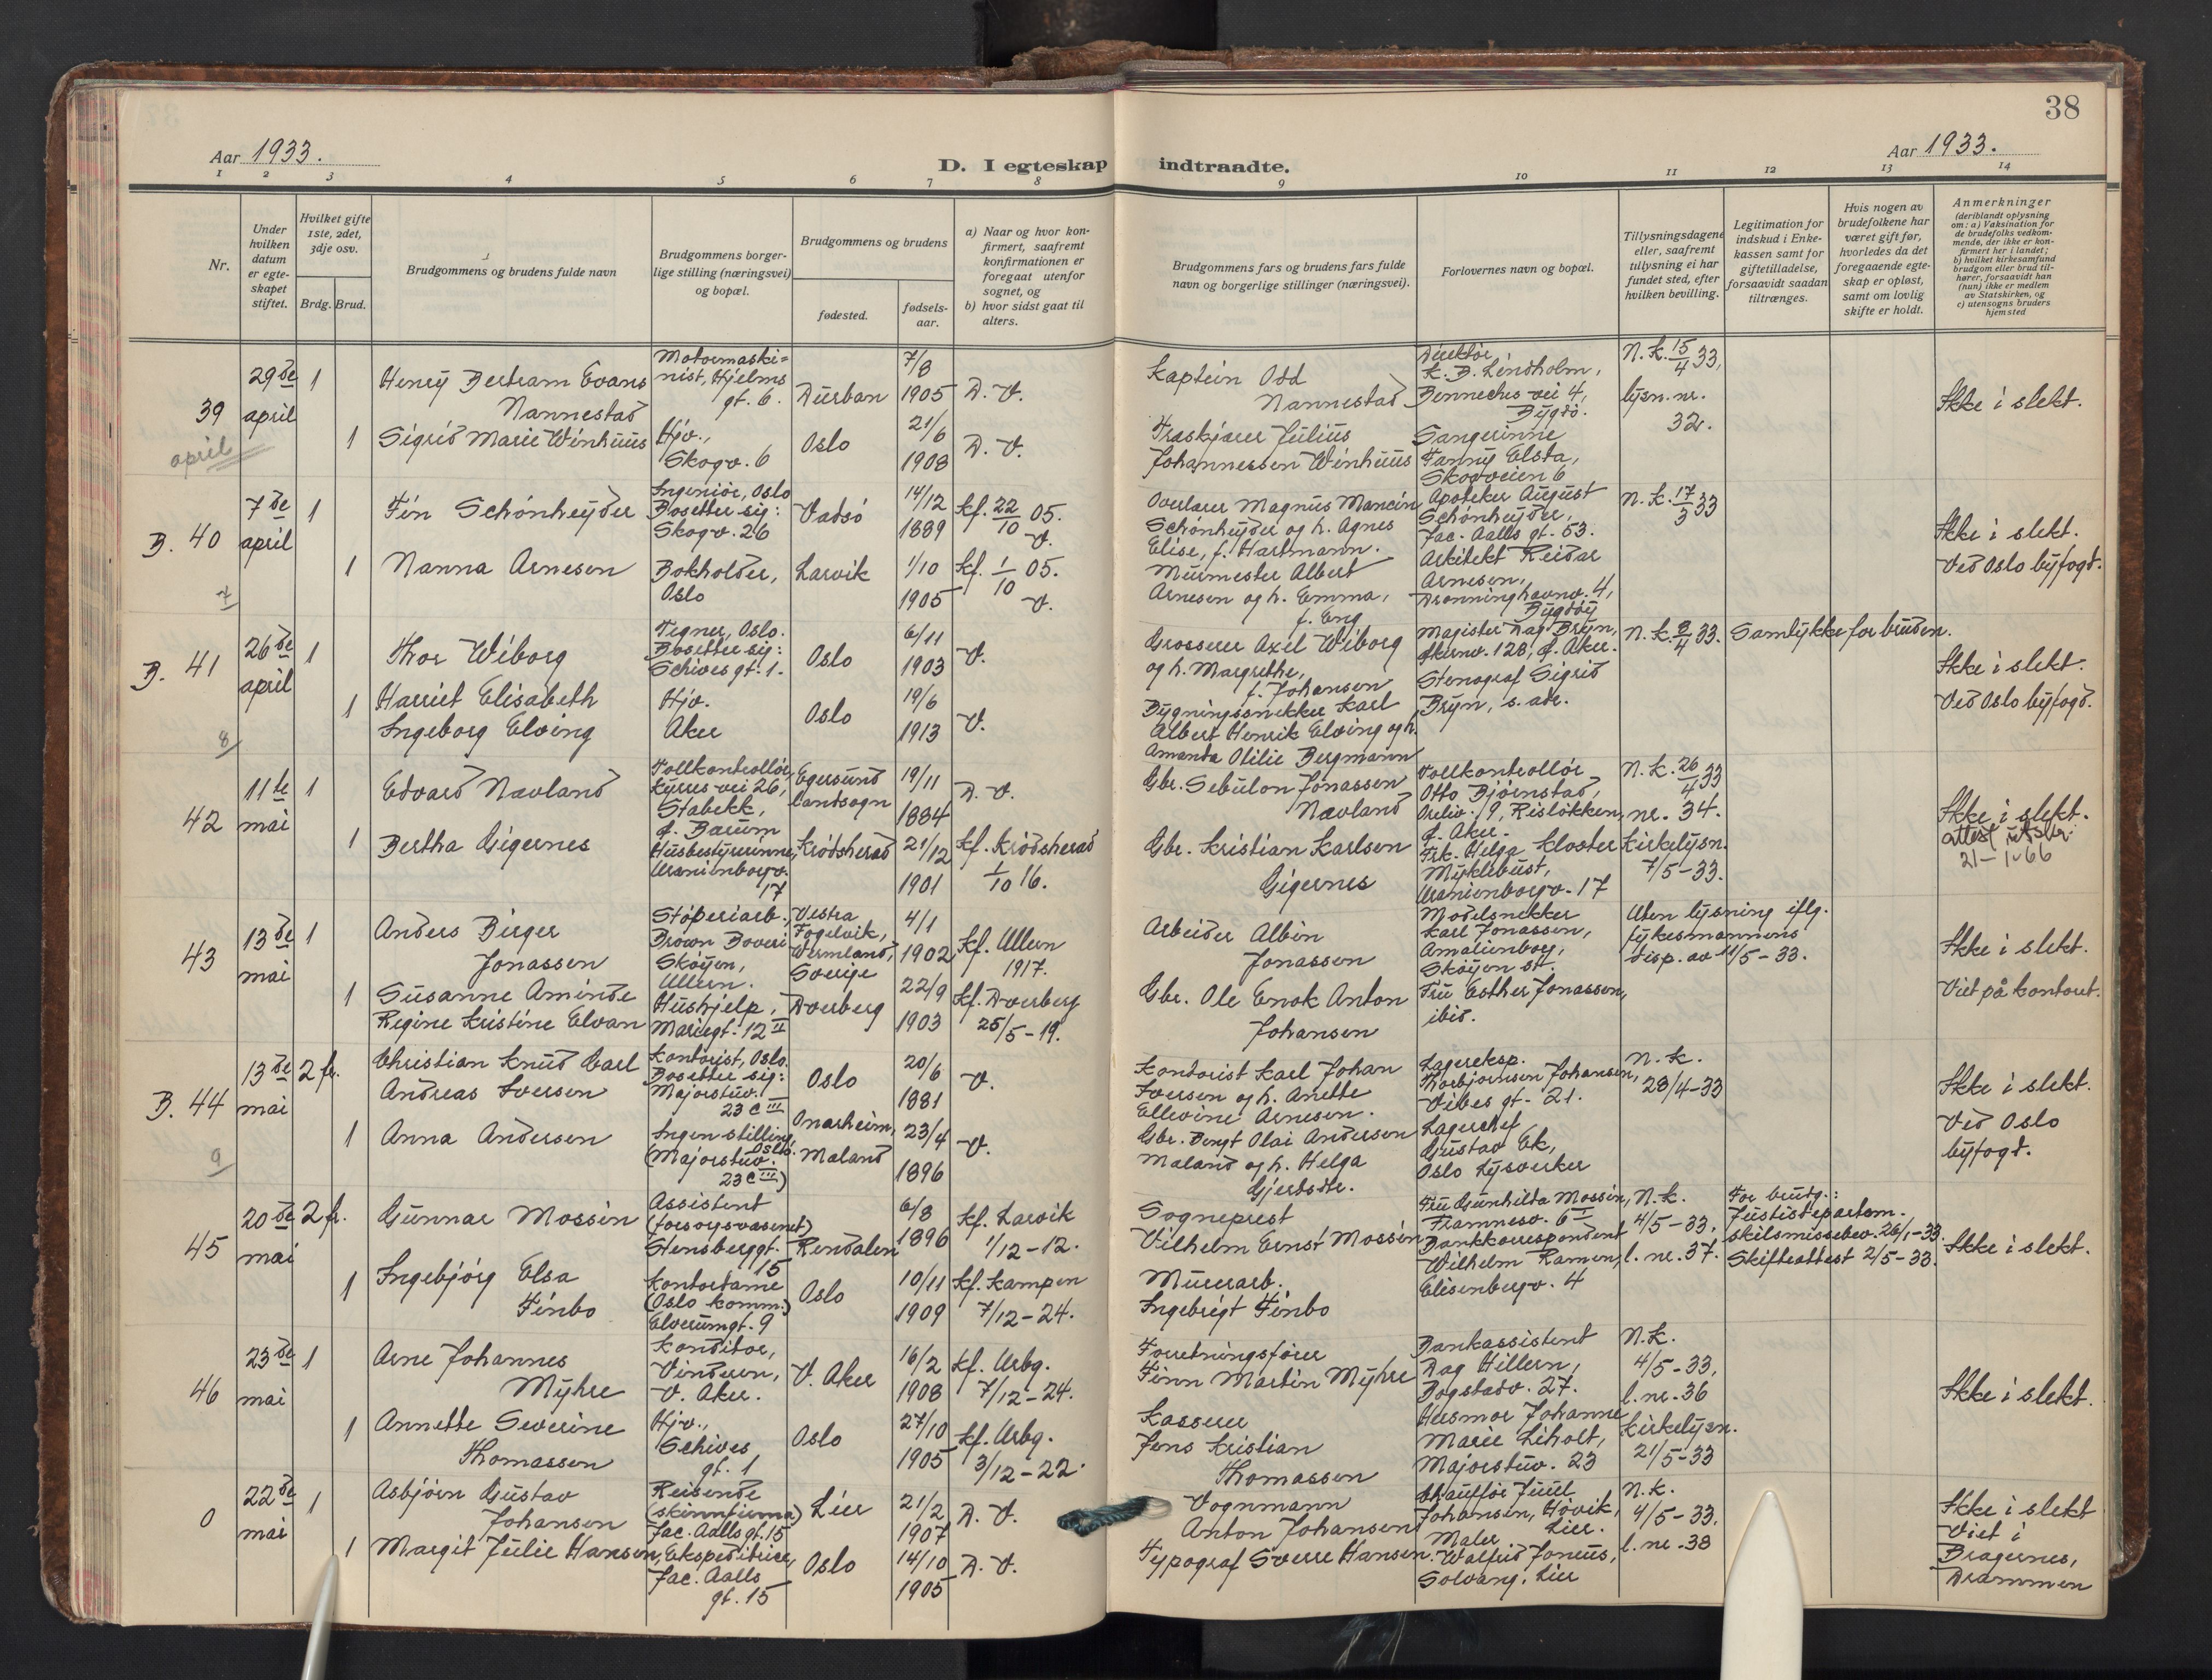 38
Aar 1933.
Aar 1933.
D. I egteskap indtraadte.
1 2 3 4 5 6 7 8 9 10 11 12 13 14
Nr.
Under hvilken datum er egteskapet stiftet.
Hvilket gifte 1ste, 2det, 3dje osv.
Brdg. Brud.
Brudgommens og brudens fulde navn
Brudgommens borgerlige stilling (næringsvei) og bopæl.
Brudgommens og brudens
fødested.
fødselsaar.
a) Naar og hvor konfirmert, saafremt konfirmationen er foregaat utenfor sognet, og
b) hvor sidst gaat til alters.
Brudgommens fars og brudens fars fulde navn og borgerlige stillinger (næringsvei).
Forlovernes navn og bopæl.
Tillysningsdagene eller, saafremt tillysning ei har fundet sted, efter hvilken bevilling.
Legitimation for indskud i Enkekassen samt for giftetilladelse, forsaavidt saadan tiltrænges.
Hvis nogen av brudefolkene har været gift før, hvorledes da det foregaaende egteskap er opløst, samt om lovlig skifte er holdt.
Anmerkninger
(deriblandt oplysning om: a) Vaksination for de brudefolks vedkommende, der ikke er konfirmert her i landet; b) hvilket kirkesamfund brudgom eller brud tilhører, forsaavidt han (hun) ikke er medlem av Statskirken, og c) utensogns bruders hjemsted
39
april
29de april
1
Henry Bertram Evans Nannestad
Motormaskinist, Hjelms gt. 6.
Durban
7/8 1905
D. V.
Kaptein Odd Nannestad
Direktør K. B. Lindholm, Benneches vei 4, Bygdø.
N. K. 15/4 33, lysn. nr. 32.
Ikke i slekt.
1
Sigrid Marie Winhuus
Hjv., Skogv. 6
Oslo
21/6 1908
D. V.
Træskjærer Julius Johannessen Winhuus
Sangerinne Fanny Elsta, Skogveien 6
B. 40
7
7de april
1
Finn Schønheyder
Ingeniør, Oslo Bosetter sig: Skogv. 26
Vadsø
14/12 1889
Kf. 22/10 05. V.
Overlærer Magnus Schønheyder og h. Agnes Elise, f. Hartmann.
Apoteker August Schønheyder, Jac. Aalls gt. 53.
N. K. 17/3 33
Ikke i slekt.
Ved Oslo byfogd.
1
Nanna Arnesen
Bokholder, Oslo
Larvik
1/10 1905
Kf. 1/10 05. V.
Murmester Albert Arnesen og h. Emma, f. Eng
Arkitekt Reidar Arnesen, Dronninghavnv. 4, Bygdøy
B. 41
8
26de april
1
Thor Wiborg
Tegner, Oslo. Bosetter sig: Schives gt. 1.
Oslo
6/11 1903
V.
Grosserer Axel Wiborg og h. Margrethe, f. Johansen
Magister Dag Bryn, Akersv. 128, V. Aker.
N. K. 8/4 33.
Samtykke for bruden.
Ikke i slekt.
Ved Oslo byfogd.
1
Harriet Elisabeth Ingeborg Elving
Hjv. Aker
Oslo
19/6 1913
V.
Bygningssnekker Karl Albert Henrik Elving og h. Amanda Otilie Bergmann
Stenograf Sigrid Bryn, s. adr.
42
11te mai
1
Edvard Navland
Tollkontrollør, Kyrres vei 26, Stabekk, V. Bærum
Egersund landsogn
19/11 1884
D. V.
Gbr. Sebulon Jonassen Navland
Tollkontrollør Otto Bjørnstad, Oreliv. 19, Risløkken, Ø. Aker.
N. K. 26/4 33 nr. 34.
Ikke i slekt.
attest utskr. 21-1-66
1
Bertha Gigernes
Husbestyrerinne, Uranienborgv. 17
Krødsherad
21/12 1901
Kf. Krødsherad 1/10 16.
Gbr. Kristian Karlsen Gigernes
Frk. Helga Kloster Myklebust, Uranienborgv. 17
Kirkelysn. 7/5-33.
43
13de mai
1
Anders Birger Jonassen
Støperiarb., Brown Boveri Skøyen, Ullern.
Vestra Fogelvik, Wermland, Sverige
4/1 1902
Kf. Ullern 1917.
Arbeider Albin Jonassen
Modelsnekker Karl Jonassen, Amalienborg, Skøyen st.
Uten lysning iflg. fykesmannens disp. av 11/5-33.
Ikke i slekt.
Viet på kontoret.
1
Susanne Aminde Regine Kristine Elvan
Hushjelp, Mariegt. 12 II
Dverberg
22/9 1903
Kf. Dverberg 25/5-19.
Gbr. Ole Enok Anton Johansen
Fru Esther Jonassen, ibid.
B. 44
9
13de mai
2 fr.
Christian Knud Carl Andreas Iversen
Kontorist, Oslo. Bosetter sig: Majorstuv. 23 C III
Oslo
20/6 1881
V.
Kontorist Karl Johan Iversen og h. Anette Ellevine Arnesen.
Lagereksp. Thorbjørnsen Johansen, Vibes gt. 21.
N. K. 28/4-33
Ikke i slekt.
Ved Oslo byfogd.
1
Anna Andersen
Ingen stilling, Oslo. (Majorstuv. 23 C III)
Onarheim, Maland
23/4 1896
V.
Gbr. Bengt Olai Andersen Maland og h. Helga Gjertsdtr.
Lagerchef Gustav Ek, Oslo Lysverker
45
20de mai
2 fr.
Gunnar Mossin
Assistent (forsorgsvæsenet) Stensberggt. 15
Rendalen
6/8 1896
Kf. Larvik 1/12-12.
Sogneprest Vilhelm Ernst Mossin
Fru Gunhilda Mossin, Framnesv. 6 I
N. K. 4/5-33. l. nr. 37.
For brudg.: Justisdepartem. skilsmissebev. 26/1-33. Skifteattest 2/5-33.
Ikke i slekt.
1
Ingebjørg Elsa Finbo
Kontordame (Oslo komm.) Elverumgt. 9
Oslo
10/11 1909
Kf. Kampen 7/12-24.
Murerarb. Ingebrigt Finbo
Bankkorrespondent Wilhelm Ramen, Elisenbergv. 4
46
23de mai
1
Arne Johannes Myhre
Konditor, Vinderen, V. Aker.
V. Aker
16/2 1908
Kf. Urbg. 7/12-24.
Forretningsfører Finn Martin Myhre
Bankassistent Dag Hillern, Bogstadv. 27.
N. K. 4/5-33, l. nr. 36
Ikke i slekt.
1
Annette Severine Thomassen
Hjv., Schives gt. 1
Oslo
27/10 1905
Kf. Urbg. 3/12-22.
Kasserer Jens Kristian Thomassen
Husmor Johanne Marie Liholt, Majorstuv. 23
Kirkelysn. 21/5-33
0
22de mai
1
Asbjørn Gustav Johansen
Reisende (skinnfirma) Jac. Aalls gt. 15
Lier
21/2 1907
D. V.
Vognmann Anton Johansen
Chauffør Juul Johansen, Høvik, Lier.
N. K. 4/5-33. l. nr. 38
Ikke i slekt
Viet i Bragernes, Drammen
1
Margit Julie Hansen
Ekspeditrice, Jac. Aalls gt. 15
Oslo
14/10 1905
D. V.
Typograf Sverre Hansen
Maler Walfrid Joneus, Solvang, Lier